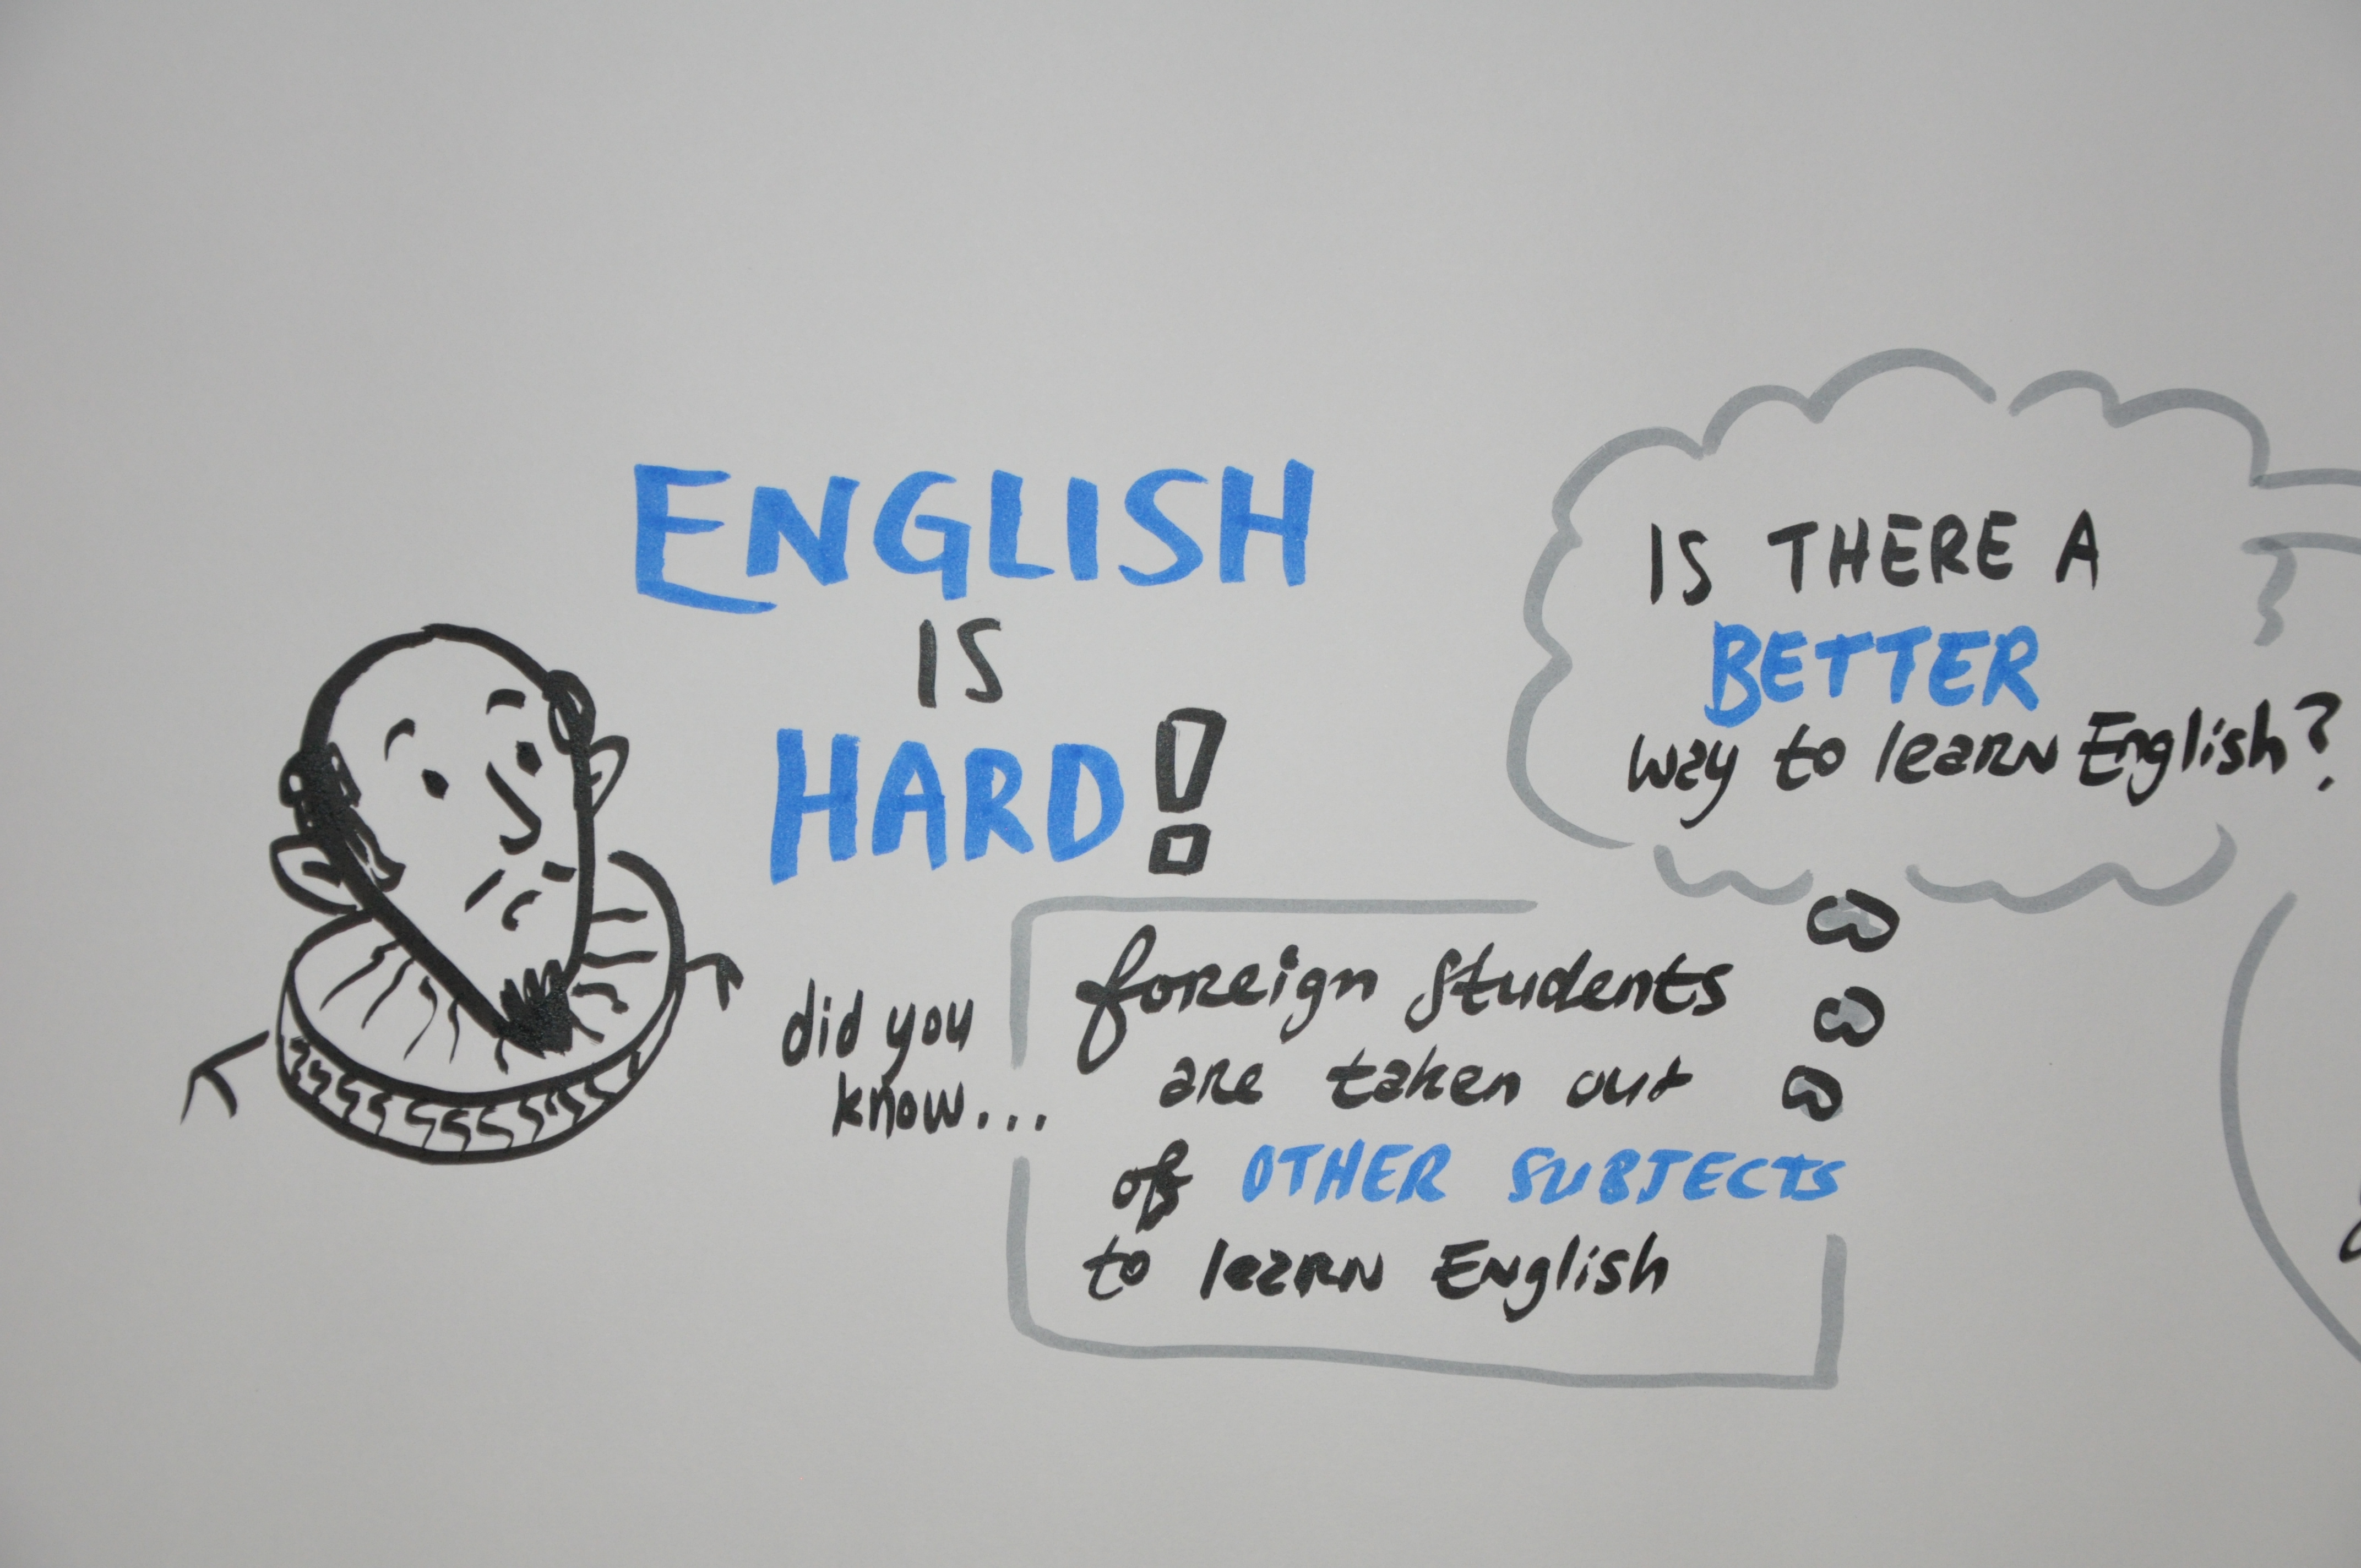 ENGLISH
IS
HARD!
did you
know...
foreign students
are taken out
of OTHER SUBJECTS
to learn English
IS THERE A
BETTER
way to learn English?